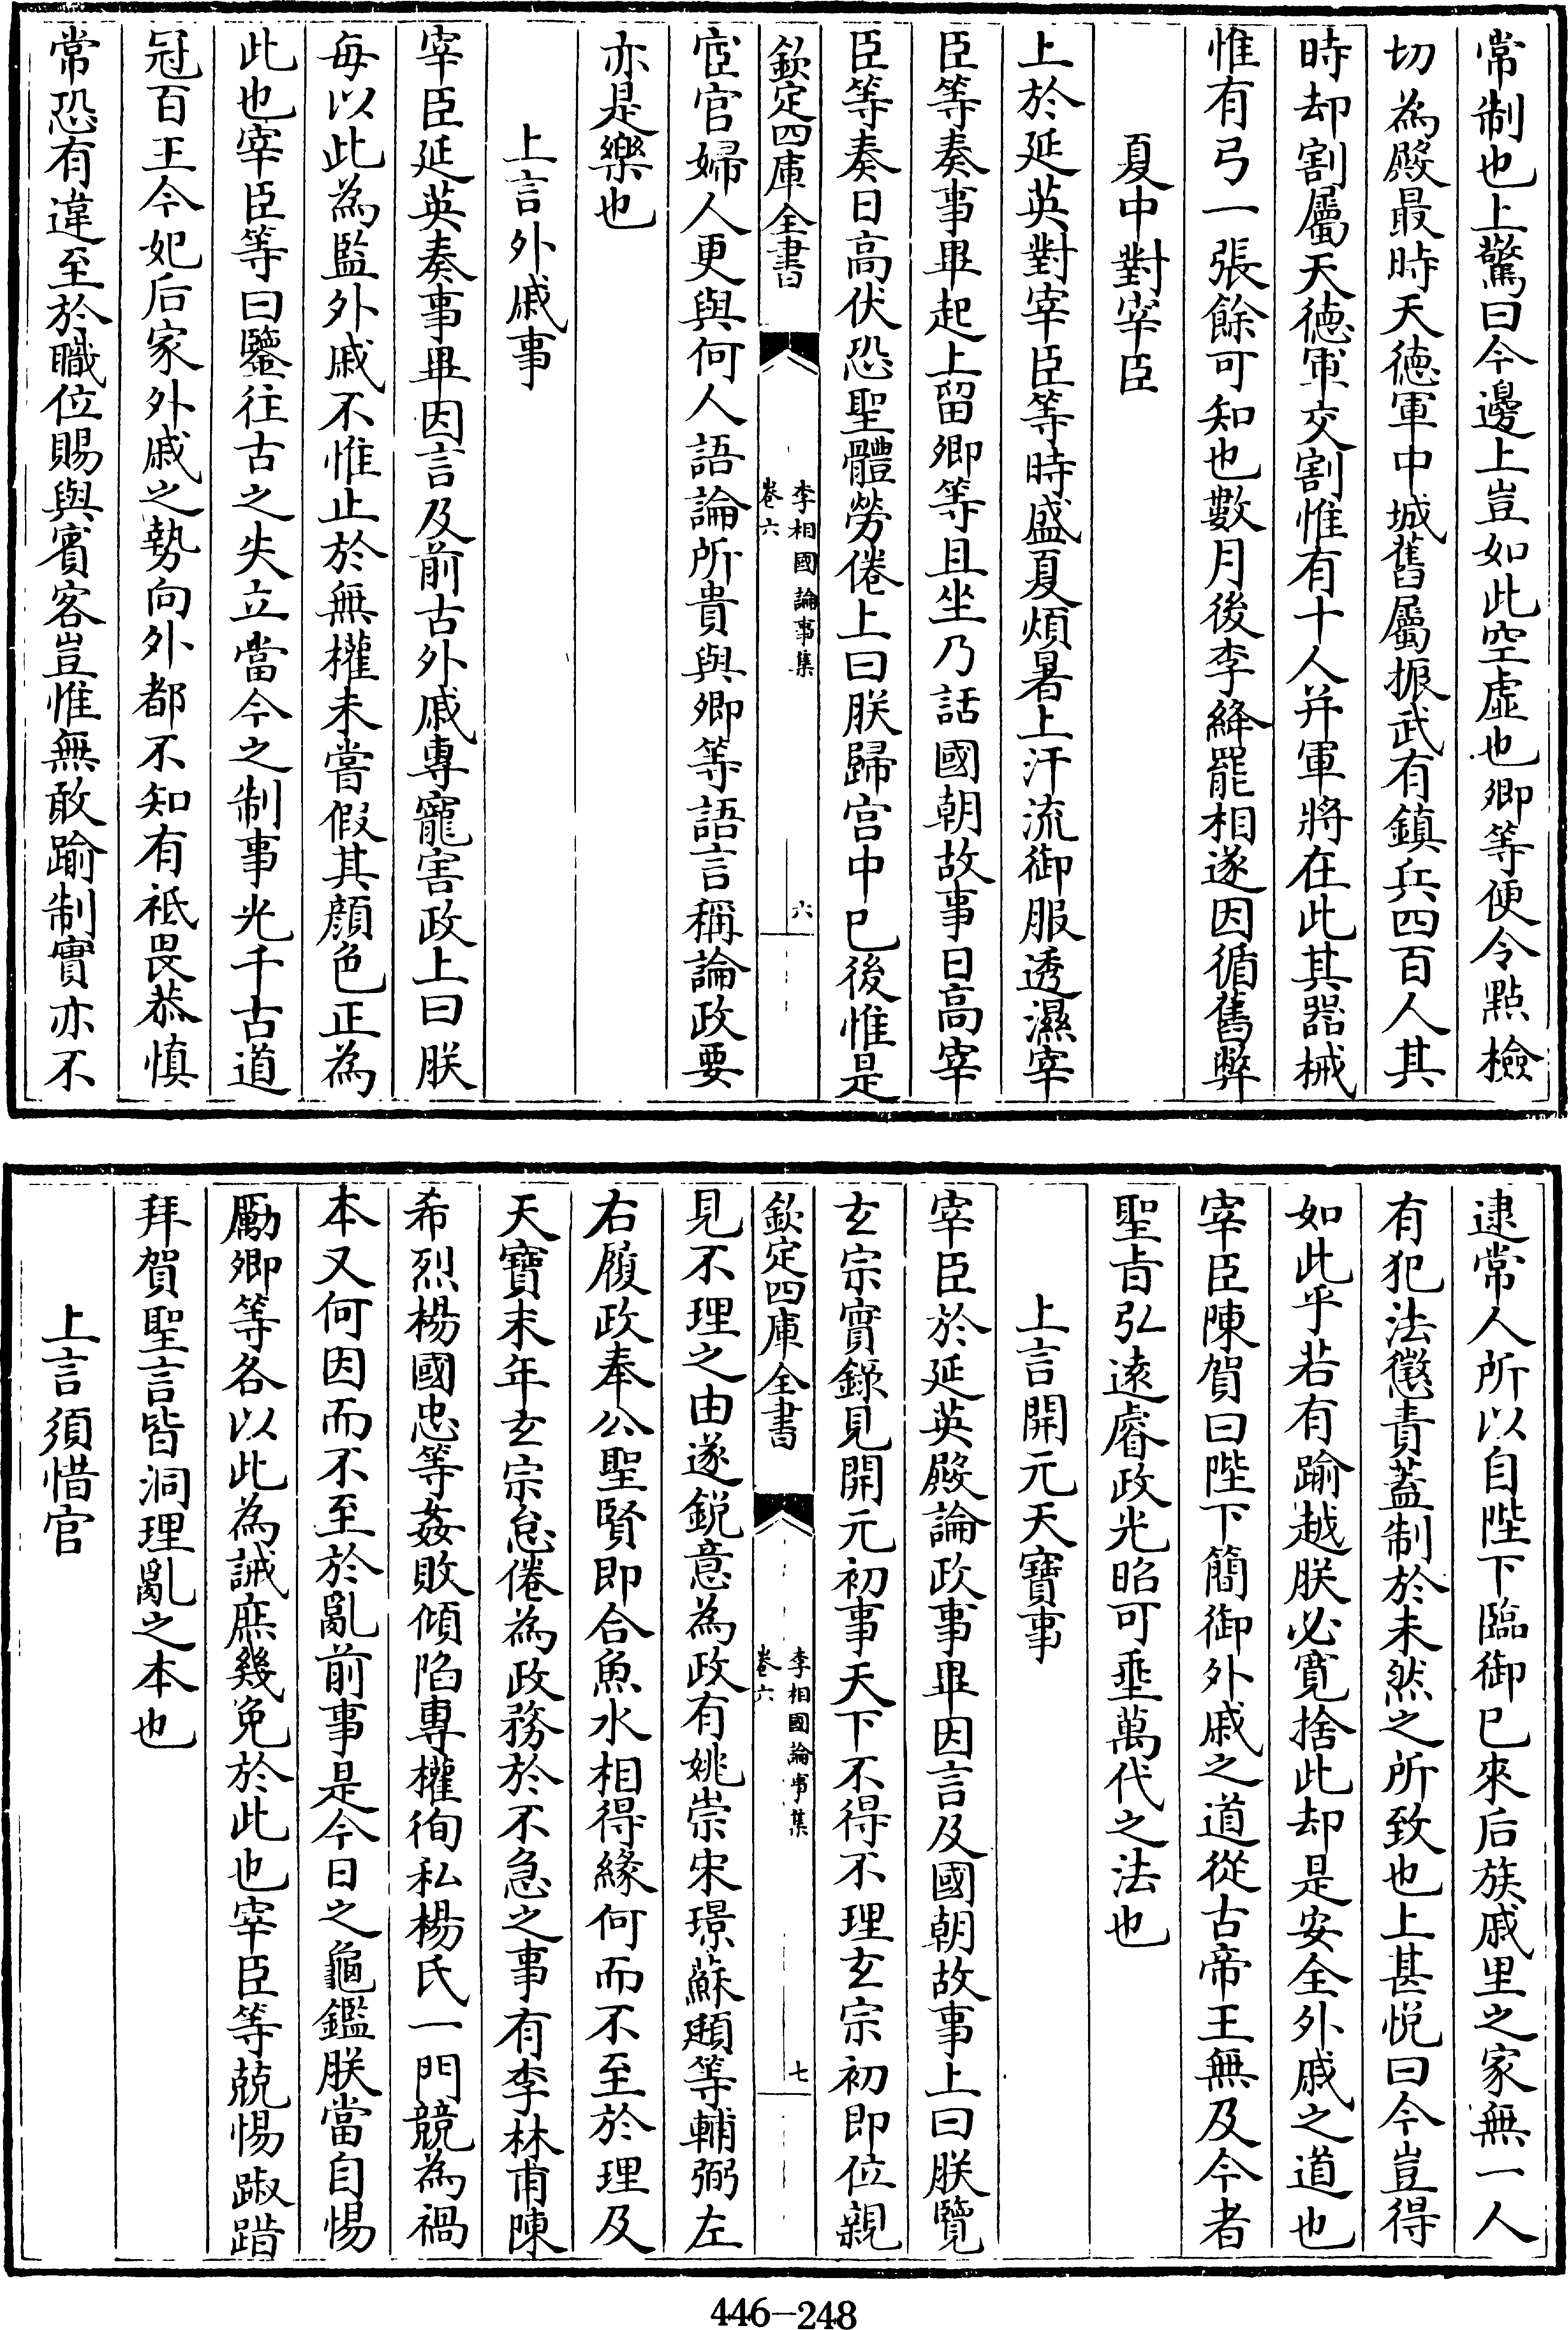 常制也上驚曰今邊上豈如此空虛也卿等便令點檢
切為殿最時天德軍中城舊屬振武有鎮兵四百人其
時却割屬天德軍交割惟有十人并軍將在此其器械
惟有弓一張餘可知也數月後李絳罷相遂因循舊弊
夏中對宰臣
上於延英對宰臣等時盛夏煩暑上汗流御服透濕宰
臣等奏事畢起上留卿等且坐乃話國朝故事日高宰
臣等奏日高伏恐聖體勞倦上曰朕歸宫中已後惟是
欽定四庫全書
李相國論事集
卷六
六
宦官婦人更與何人語論所貴與卿等語言稱論政要
亦是樂也
上言外戚事
宰臣延英奏事畢因言及前古外戚專寵害政上曰朕
每以此為監外戚不惟止於無權未嘗假其顔色正為
此也宰臣等曰鑒往古之失立當今之制事光千古道
冠百王今妃后家外戚之勢向外都不知有祗畏恭慎
常恐有違至於職位賜與賓客豈惟無敢踰制實亦不
逮常人所以自陛下臨御已來后族戚里之家無一人
有犯法懲責蓋制於未然之所致也上甚悦曰今豈得
如此乎若有踰越朕必寛捨此却是安全外戚之道也
宰臣陳賀曰陛下簡御外戚之道從古帝王無及今者
聖㫖弘遠睿政光昭可垂萬代之法也
上言開元天寶事
宰臣於延英殿論政事畢因言及國朝故事上曰朕覽
玄宗實錄見開元初事天下不得不理玄宗初即位親
欽定四庫全書
李相國論事集
卷六
七
見不理之由遂鋭意為政有姚崇宋璟蘇頲等輔弼左
右履政奉公聖賢即合魚水相得緣何而不至於理及
天寶末年玄宗怠倦為政務於不急之事有李林甫陳
希烈楊國忠等姦敗傾陷專權徇私楊氏一門競為禍
本又何因而不至於亂前事是今日之龜鑑朕當自惕
勵卿等各以此為誡庶幾免於此也宰臣等兢惕踧踖
拜賀聖言皆洞理亂之本也
上言須惜官
446-248